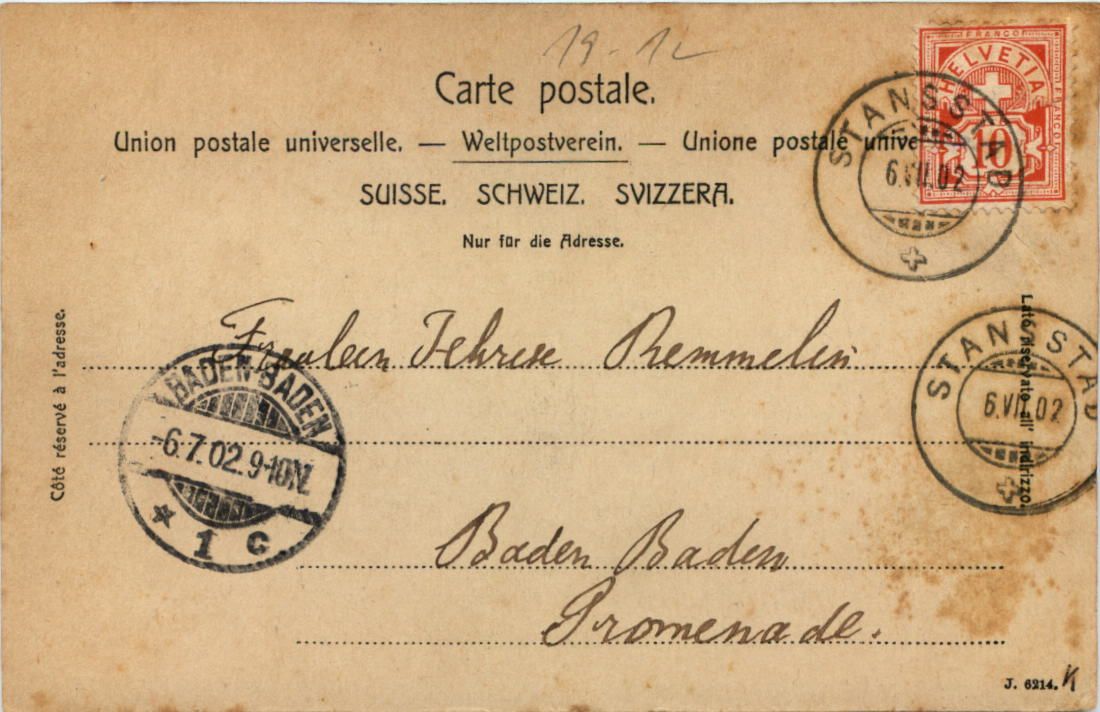 19-12
Carte postale.
Union postale universelle. — Weltpostverein. — Unione postale unive
SUISSE. SCHWEIZ. SVIZZERA.
Nur für die Adresse.
FRANCO
HELVETIA
FRANCO
10
STANSSTAD
6.VII.02
Côté réservé à l'adresse.
Lato riservato all' indirizzo
STANSSTAD
6.VII.02
Fräulein Theres Remmelin
BADEN-BADEN
-6.7.02.9-10N.
* 1 c
Baden Baden
Promenade.
J. 6214.